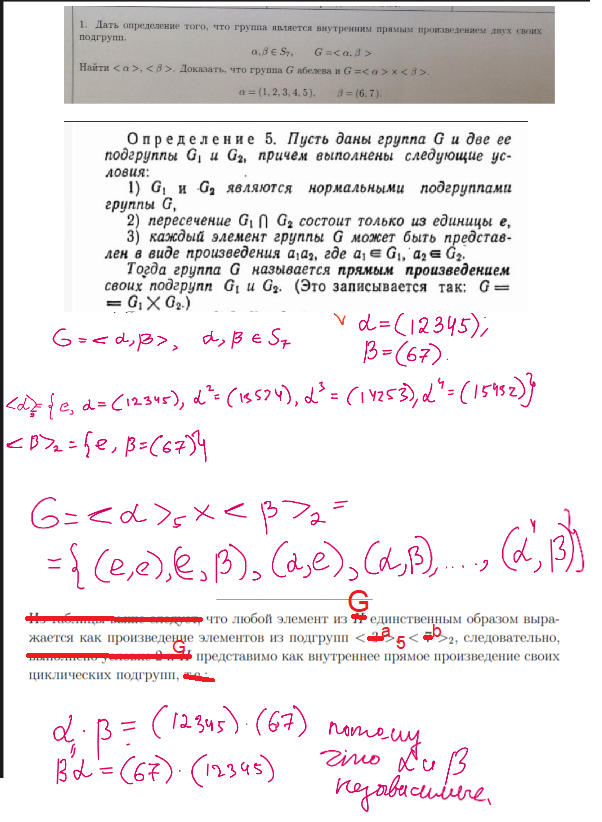 1. Дать определение того, что группа является внутренним прямым произведением двух своих
подгрупп.
α, β ∈ S₇, G =< α, β >
Найти < α >, < β >. Доказать, что группа G абелева и G =< α > × < β >.
α = (1, 2, 3, 4, 5), β = (6, 7).
Определение 5. Пусть даны группа G и две ее
подгруппы G₁ и G₂, причем выполнены следующие ус-
ловия:
1) G₁ и G₂ являются нормальными подгруппами
группы G,
2) пересечение G₁ ⋂ G₂ состоит только из единицы e,
3) каждый элемент группы G может быть представ-
лен в виде произведения a₁a₂, где a₁ ∈ G₁, a₂ ∈ G₂.
Тогда группа G называется прямым произведением
своих подгрупп G₁ и G₂. (Это записывается так: G =
= G₁ × G₂.)
G = <α, β>, α, β ∈ S₇
α = (12345);
β = (67).
<α>₅ = {e, α = (12345), α² = (13524), α³ = (14253), α⁴ = (15432)}
<β>₂ = {e, β = (67)}
G = <α>₅ × <β>₂ =
= {(e,e), (e,β), (α,e), (α,β), ..., (α⁴, β)}
что любой элемент из G единственным образом выра-
жается как произведение элементов из подгрупп < a >₅ < b >₂, следовательно,
G представимо как внутреннее прямое произведение своих
циклических подгрупп,
α · β = (12345) · (67) потому
βα = (67) · (12345) что α и β
независимые.